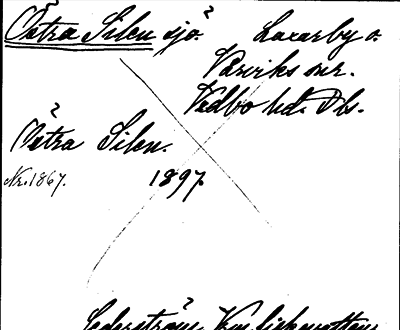 Östra Silen sjö. Laxarby o.
Vårviks snr.
Vedbo hd. Dls.
Östra Silen.
Nr. 1867. 1897.
Cederström, Vm. fiskevatten